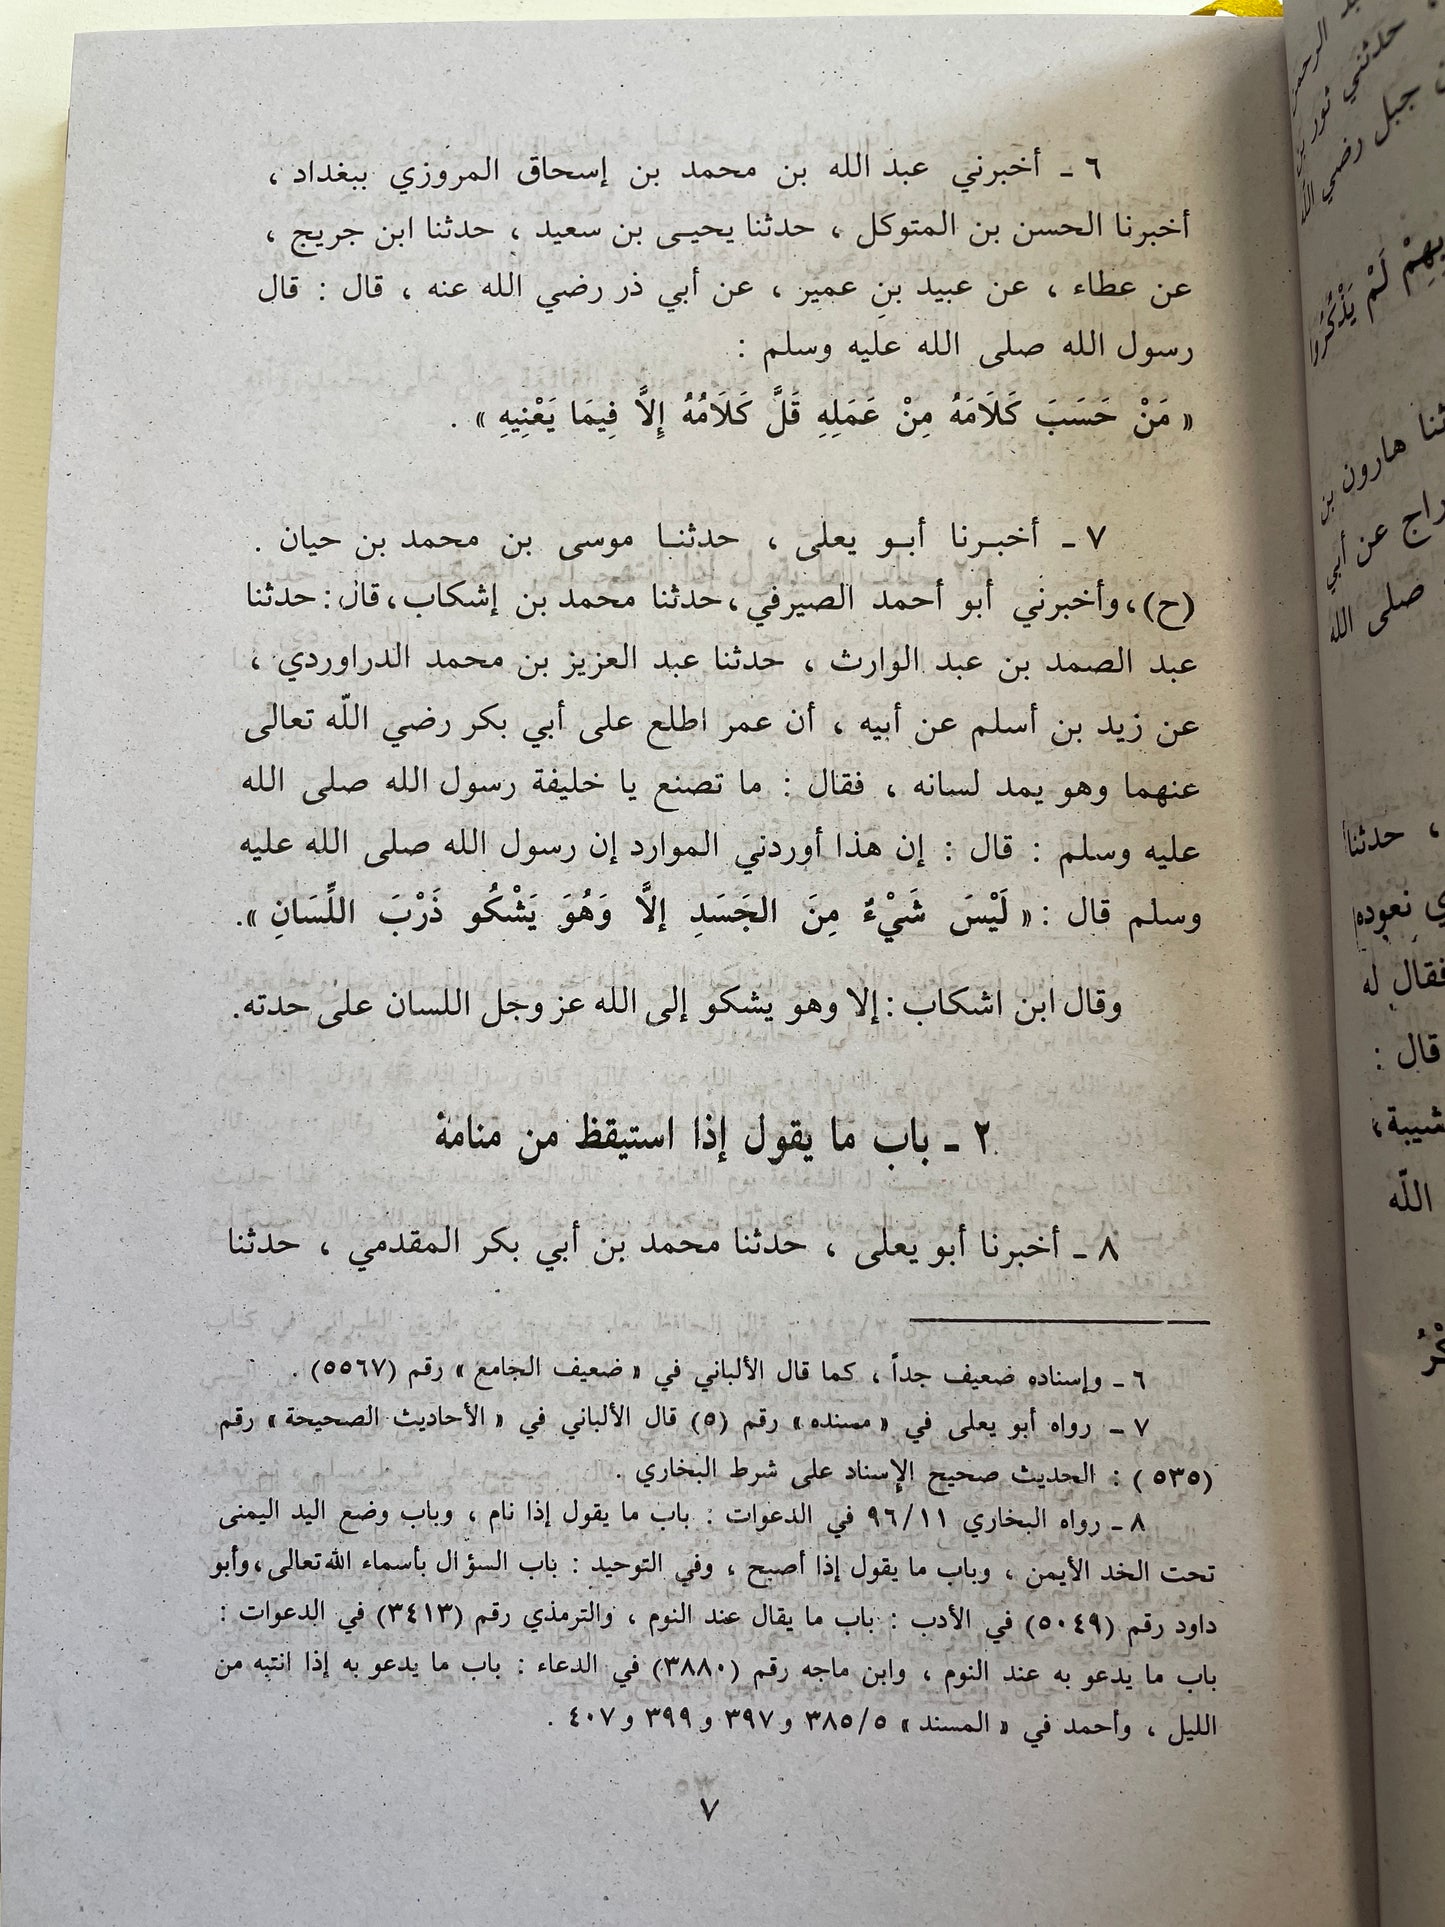 ٦ ـ أخبرني عبد الله بن محمد بن إسحاق المروزي ببغداد ،
أخبرنا الحسن بن المتوكل ، حدثنا يحيـى بن سعيد ، حدثنا ابن جريج ،
عن عطاء ، عن عبيد بنِ عمير ، عن أبي ذر رضي الله عنه ، قال : قال
رسول الله صلى الله عليه وسلم :
« مَنْ حَسَبَ كَلَامَهُ مِنْ عَمَلِهِ قَلَّ كَلَامُهُ إِلاَّ فِيمَا يَعْنِيهِ » .
٧ ـ أخبـرنا أبـو يعلى ، حدثنـا موسى بن محمد بن حيان .
(ح)،وأخبرني أبو أحمد الصيرفي،حدثنا محمد بن إشكاب،قال:حدثنا
عبد الصمد بن عبد الوارث ، حدثنا عبد العزيز بن محمد الدراوردي ،
عن زيد بن أسلم عن أبيه ، أن عمر اطلع على أبي بكر رضي اللّه تعالى
عنهما وهو يمد لسانه ، فقال : ما تصنع يا خليفة رسول الله صلى الله
عليه وسلم : قال : إن هذا أوردني الموارد إن رسول الله صلى الله عليه
وسلم قال : « لَيْسَ شَيْءٌ مِنَ الجَسَدِ إلاَّ وَهُوَ يَشْكُو ذَرْبَ اللِّسَانِ ».
وقال ابن اشكاب : إلا وهو يشكو إلى الله عز وجل اللسان على حدته.
٢ ـ باب ما يقول إذا استيقظ من منامه
٨ ـ أخبرنا أبو يعلى ، حدثنا محمد بن أبي بكر المقدمي ، حدثنا
٦ ـ وإسناده ضعيف جداً ، كما قال الألباني في « ضعيف الجامع » رقم (٥٥٦٧) .
٧ ـ رواه أبو يعلى في « مسنده » رقم (٥) قال الألباني في « الأحاديث الصحيحة » رقم
(٥٣٥) : الحديث صحيح الإسناد على شرط البخاري .
٨ ـ رواه البخاري ٩٦/١١ في الدعوات : باب ما يقول إذا نام ، وباب وضع اليد اليمنى
تحت الخد الأيمن ، وباب ما يقول إذا أصبح ، وفي التوحيد : باب السؤال بأسماء الله تعالى،وأبو
داود رقم (٥٠٤٩) في الأدب : باب ما يقال عند النوم ، والترمذي رقم (٣٤١٣) في الدعوات :
باب ما يدعو به عند النوم ، وابن ماجه رقم (٣٨٨٠) في الدعاء : باب ما يدعو به إذا انتبه من
الليل ، وأحمد في « المسند » ٣٨٥/٥ و٣٩٧ و٣٩٩ و٤٠٧ .
٧
الرحمن
حدثني ثور بن
جبل رضي الله
لَمْ يَذْكُرُوا
هارون بن
عن أبي
صلى الله
، حدثنا
نعوده
فقال له
قال :
شيبة،
اللّه